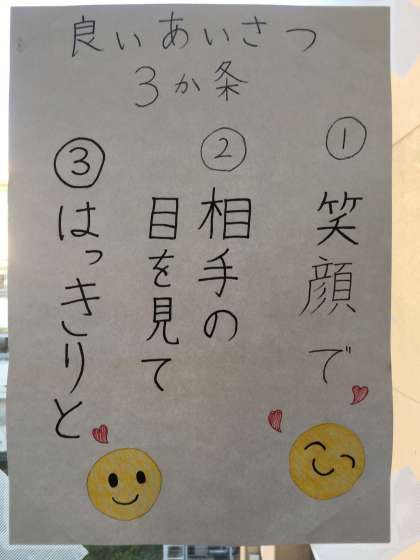 良いあいさつ
3か条
①
笑顔で
②
相手の
目を見て
③
はっきりと